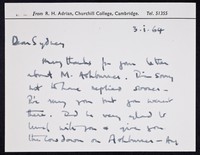 from R. H. Adrian, Churchill College, Cambridge. Tel. 51355
3-i-64
Dear Sydney
Many thanks for your letter
about M. Ashburner. I'm sorry
not to have replied sooner -
I've rung you but you weren't
there. I'd be very glad to
lunch with you & give you
the low down on Ashburner - Any